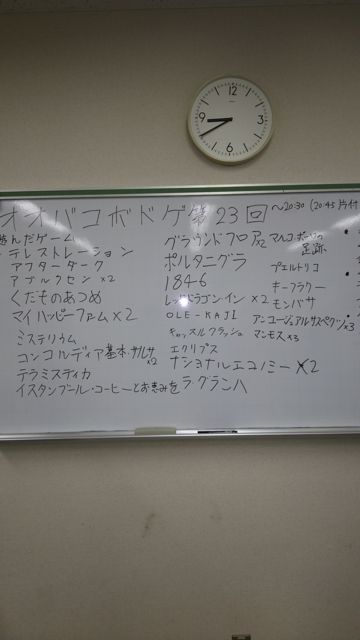 オオバコボドゲ第23回 ～20:30 (20:45 片付
遊んだゲーム
・テレストレーション
アフターダーク
アブルクセン×2
くだものあつめ
マイハッピーファーム×2
ミステリウム
コンコルディア基本・サルサ×2
テラミスティカ
イスタンブール・コーヒーとお恵みを
グラウンドフロア2
ポルタニグラ
1846
レッドドラゴン・イン×2
OLE-KAJI
キャッスルクラッシュ
エクリプス
ナショナルエコノミー×2
ラ・グランハ
マルコポーロの足跡
プエルトリコ
キーフラワー
モンバサ
アンユージュアルサスペクツ×3
マンモス×3
12
3
6
9